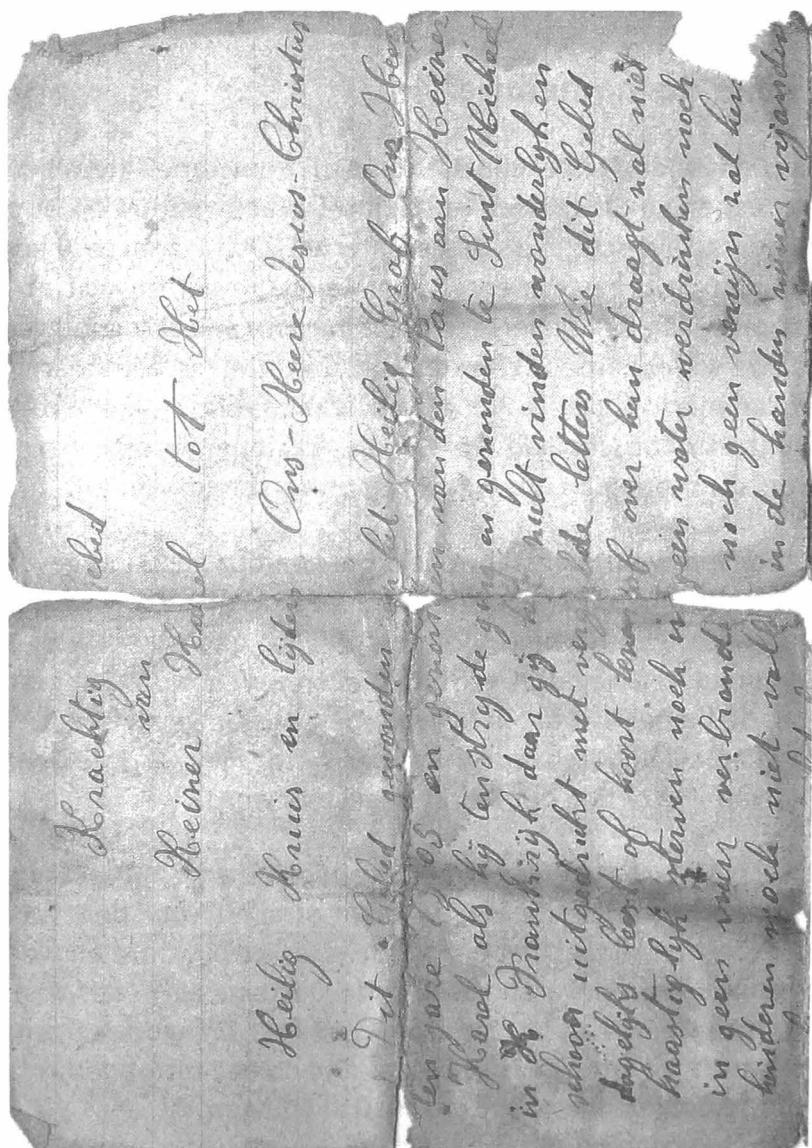 Krachtig ebed
van
Keizer Karel tot Het
Heilig Kruis en lijden Ons-Heere Jesus-Christus
Dit Gebed gevonden het Heilig Graf Ons Heer
ten jare en van den Paus aan Keizer
Karel als hij ten stryde en gezonden te Sint Michiel
in Frankrijk daar gij zult vinden wonderlyk en
schoon uitgedrukt met de letters Wie dit Gebed
dagelijks leest of hoort over hem draagt zal niet
haastiglyk sterven noch in een water verdrinken noch
in geen vuur verbrande noch geen venijn zal hem
hinderen noch niet vall in de handen zijner vijanden